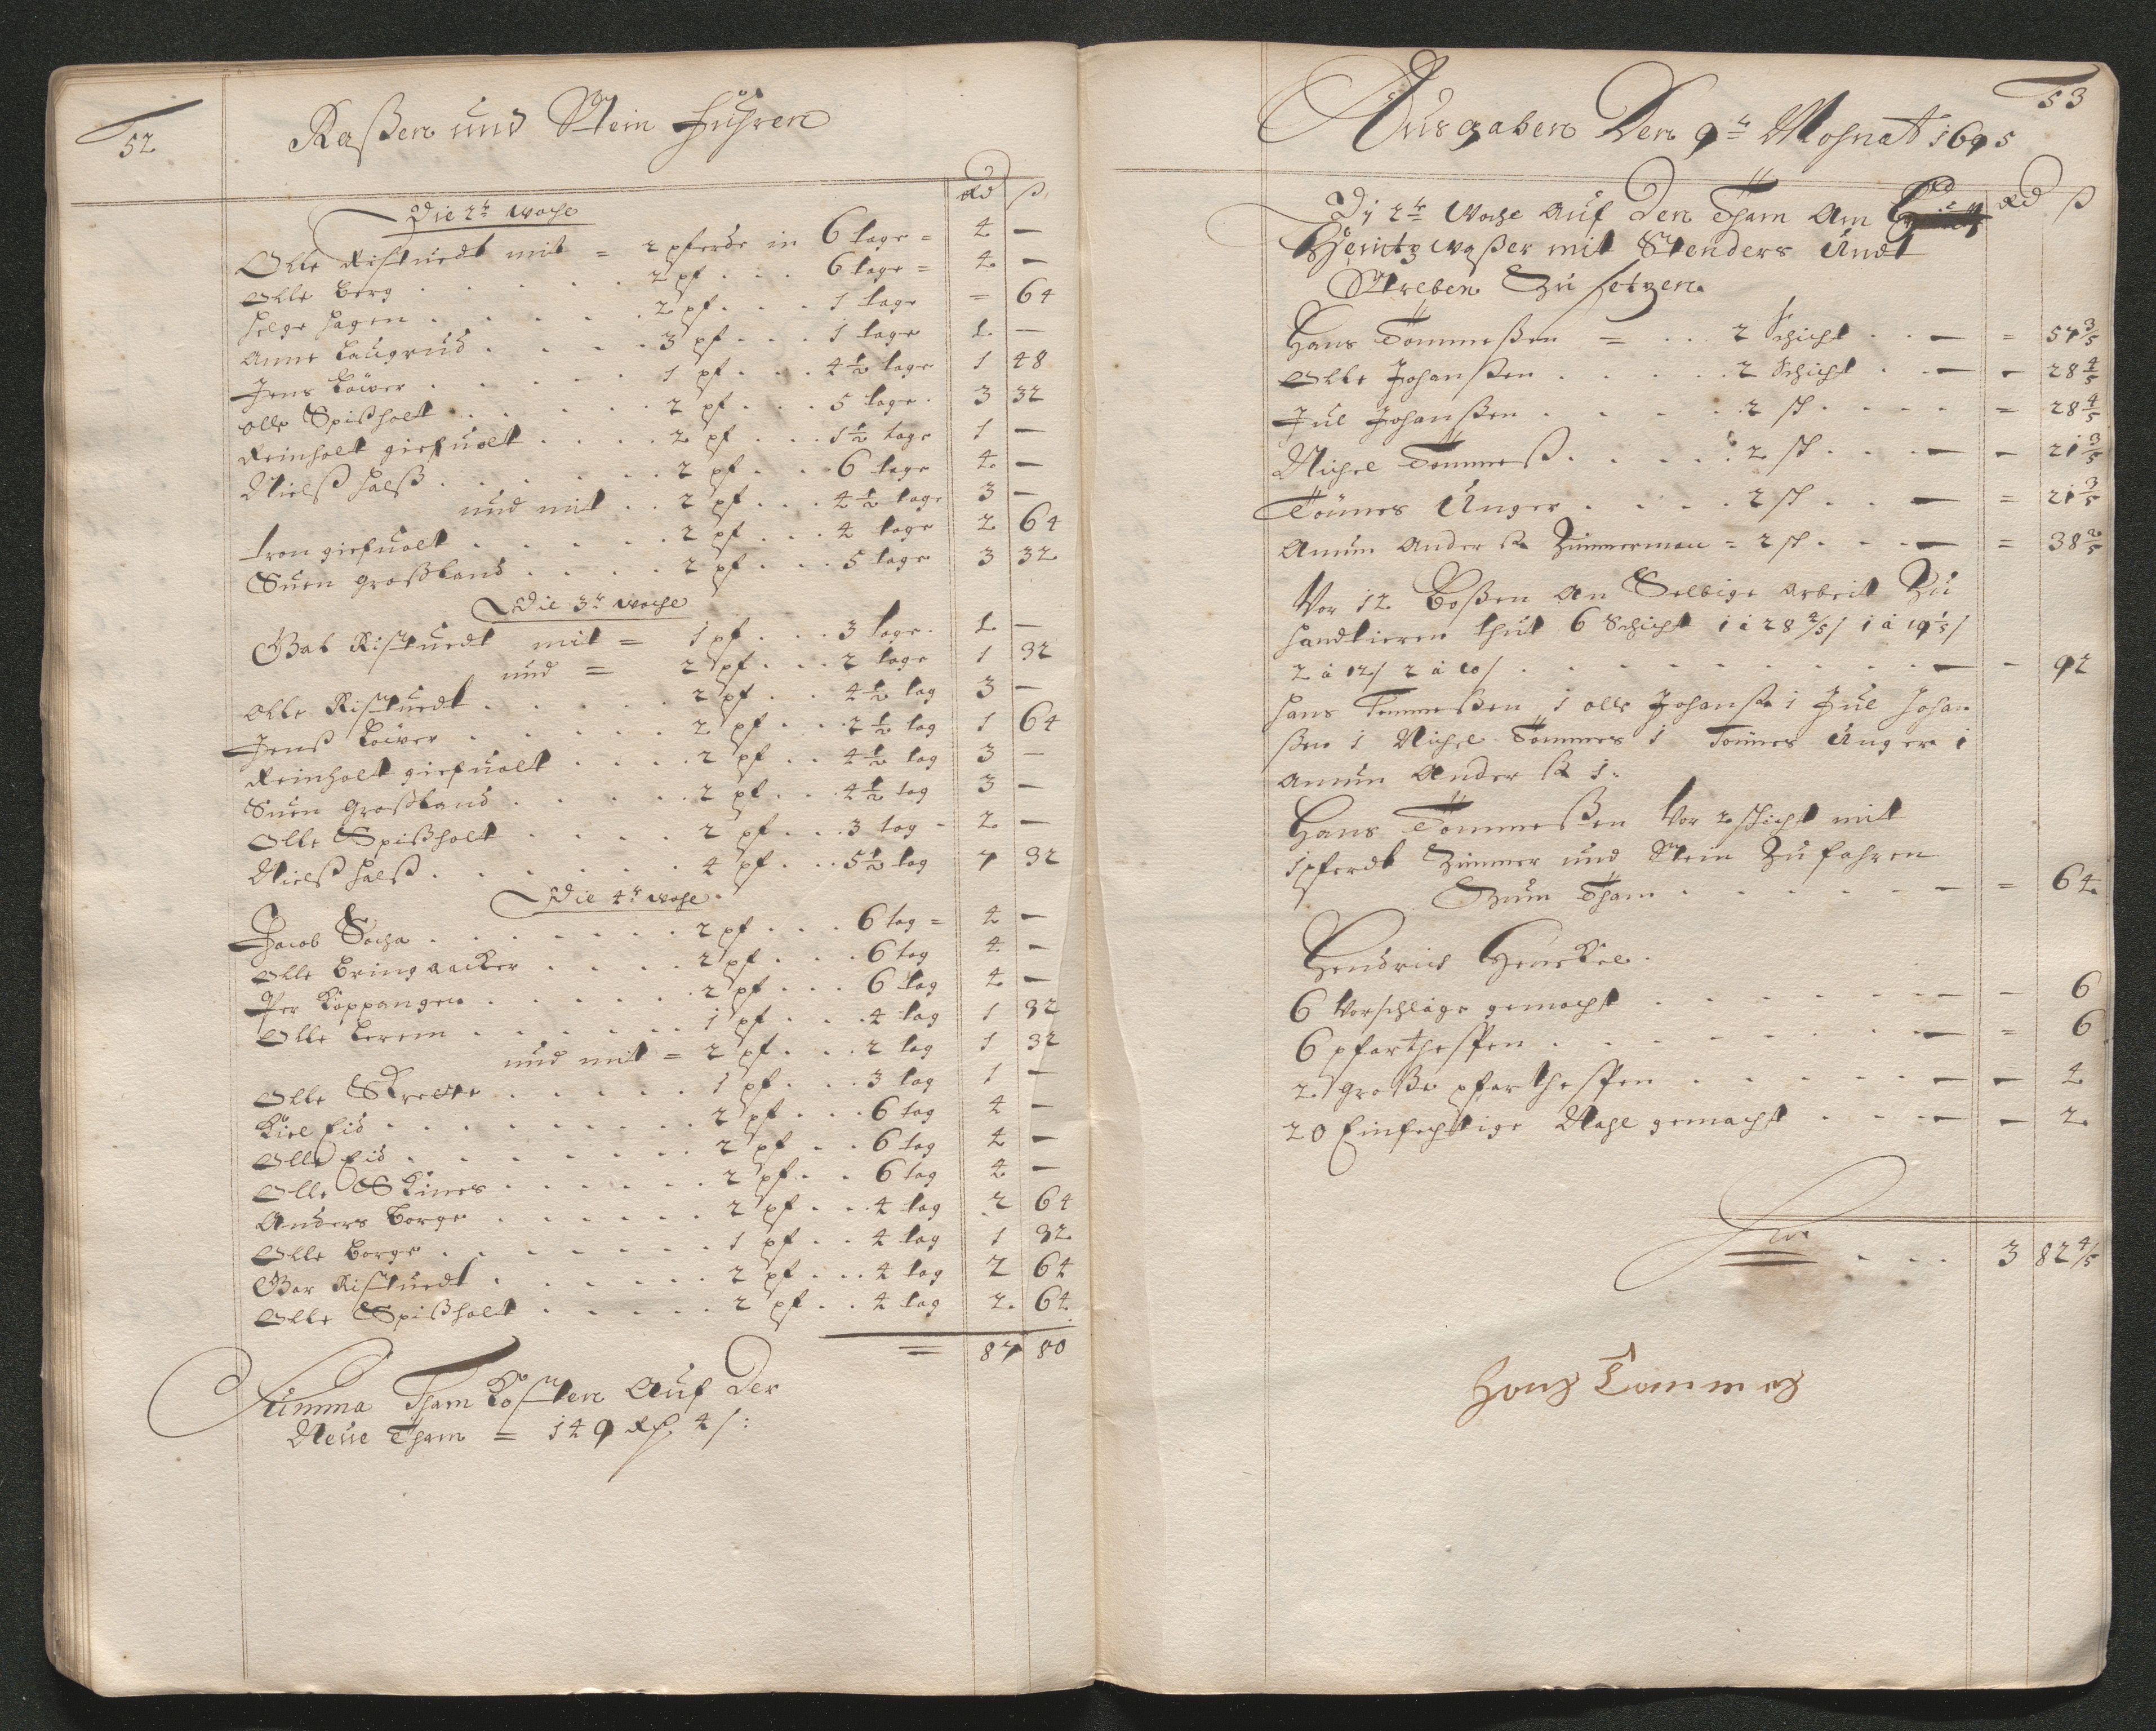 52
Raßen und Stein Führen
Rd ß
Die 2te woche
Olle Ristuedt mit = 2 pferde in 6 tage = 4 —
Olle Berg . . . . . 2 pf . . . 6 tage = 4 —
Helge Hagen . . . . . 2 pf . . . 1 tage = 64
Anne Laugrud . . . . 3 pf . . . 1 tage 1 —
Jens Löwer . . . . . 1 pf . . . 4½ tage 1 48
Olle Spißholt . . . . . 2 pf . . . 5 tage . 3 32
Reinholt giefuelt . . . . 2 pf . . . 1½ tage 1 —
Nielß Halß . . . . . . 2 pf . . . 6 tage 4 —
und mit . . 2 pf . . . 4½ tage 3 —
Tron giefuelt . . . . . 2 pf . . . 4 tage 2 64
Suen Großband . . . . 2 pf . . . 5 tage 3 32
Die 3te woche
Ristuedt mit = 1 pf . . . 3 tage . 1 —
und = 2 pf . . . 2 tage 1 32
Olle Ristuedt . . . . . 2 pf . . 4½ tag 3 —
Jenß Löwer . . . . . 2 pf . . . 2½ tag 1 64
Reinholt giefuelt . . . . 2 pf . . 4½ tag 3 —
Suen Großband . . . . . 2 pf . . . 4½ tag 3 —
Olle Spißholt . . . . 2 pf . . . 3 tag - 2 —
Nielß Halß . . . . . . 4 pf . . . 5½ tag 7 32
Die 4te woche .
Jacob Socha . . . . . . . 2 pf . . . 6 tag = 4 —
Olle Bringaacker . . . . 2 pf . . . 6 tag 4 —
Per Koppangen . . . . . . 2 pf . . . 6 tag 4 —
Olle Berem . . . . . . 1 pf . . . 4 tag 1 32
und mit = 2 pf . . . 2 tag 1 32
Olle . . . . . 1 pf . . . 3 tag 1 —
Kiel Eid . . . . . . . . . 2 pf . . . 6 tag 4 —
Olle Eid . . . . . . . . 2 pf . . 6 tag 4 —
Olle Skines . . . . . . 2 pf . . 6 tag 4 —
Anders Borge . . . . . . 2 pf . . . 4 tag 2 64
Olle Borge . . . . . . . 1 pf . . 4 tag 1 32
Ristuedt . . . . . . 2 pf . . . 4 tag 2 64
Olle Spißholt . . . . . 2 pf . . 4 tag 2 64
= 87 80
Summa Tham kosten Auf der
Neue Tham = 149 4 ß:
53
Ausgaben Den 9te Mohnat 1695
Rd ß
Di 2te Woche Auf Den Tham Am
waßer mit Stenders Undt
Streben Zu setzen.
Hans Tommeßen = . . 2 Schicht . . — = 57 3/5
Olle Johanßen . . . . . 2 Schicht . . — - 28 4/5
Jul Johanßen . . . . 2 sch . . . . = 28 4/5
Michel Tommeß . . . . . 2 sch . . . — - 21 3/5
Tönnes Unger . . . . 2 sch . . — = 21 3/5
Amun Anderß Zimmerman = 2 sch . . . — = 38 2/5
Vor 12 Boßen An Selbige Arbeit Zu
handtieren thut 6 Schicht 1 à 28 4/5 / 1 à 19 1/5 /
2 à 12 / 2 à 10 / . . . . . . . . . . — - 92
Hans Tommeßen 1 Olle Johanß 1 Jul Johan
ßen 1 Michel Tommes 1 Tönnes Unger 1
Amun Anderß 1.
Hans Tommeßen Vor 2 schicht mit
1 pferdt Zimmer und Stein Zu fahren
Zum Tham . . . . . . . — = 64
Hendrich Henckel .
6 Vorschläge gemacht . . . . . . — - 6
6 pfarthespen . . . . . . . — = 6
2 große pfarthespen . . . . . — - 4
20 Einfechtige Nagl gemacht . . . — - 2
. . . 3 82 4/5
Hans Tommes